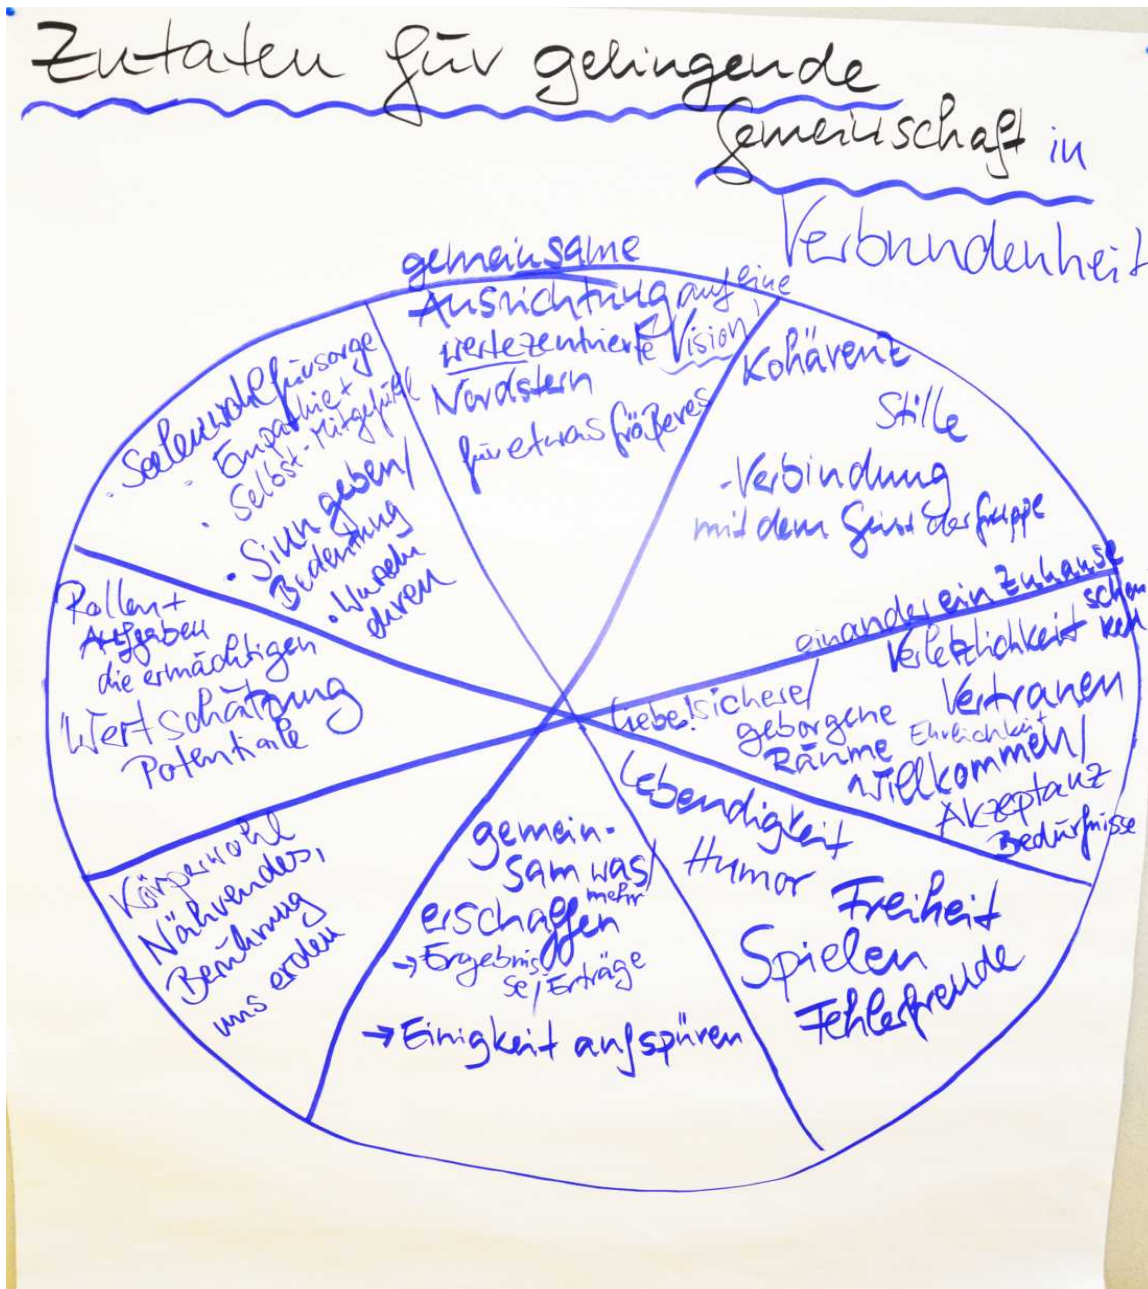 Zutaten für gelingende
Gemeinschaft in
Verbundenheit
gemeinsame
Ausrichtung auf eine
wertezentrierte Vision
Nordstern
für etwas größeres
Kohärenz
Stille
-Verbindung
mit dem Geist der Gruppe
einander ein Zuhause
schenken
Verletzlichkeit
Vertrauen
Liebe! sichere/
geborgene
Räume
Ehrlichkeit
Willkommen/
Akzeptanz
Bedürfnisse
Lebendigkeit
Humor
Freiheit
Spielen
Fehlerfreude
gemein-
sam was/
mehr
erschaffen
→ Ergebnis
se/Erträge
→ Einigkeit aufspüren
Körperwohl
Nährendes,
Berührung
uns erden
Rollen +
Aufgaben
die ermächtigen
Wertschätzung
Potentiale
· Seelenwohlfürsorge
· Empathie +
· Selbst-Mitgefühl
· Sinn geben/
Bedeutung
· Wurzeln
ehren